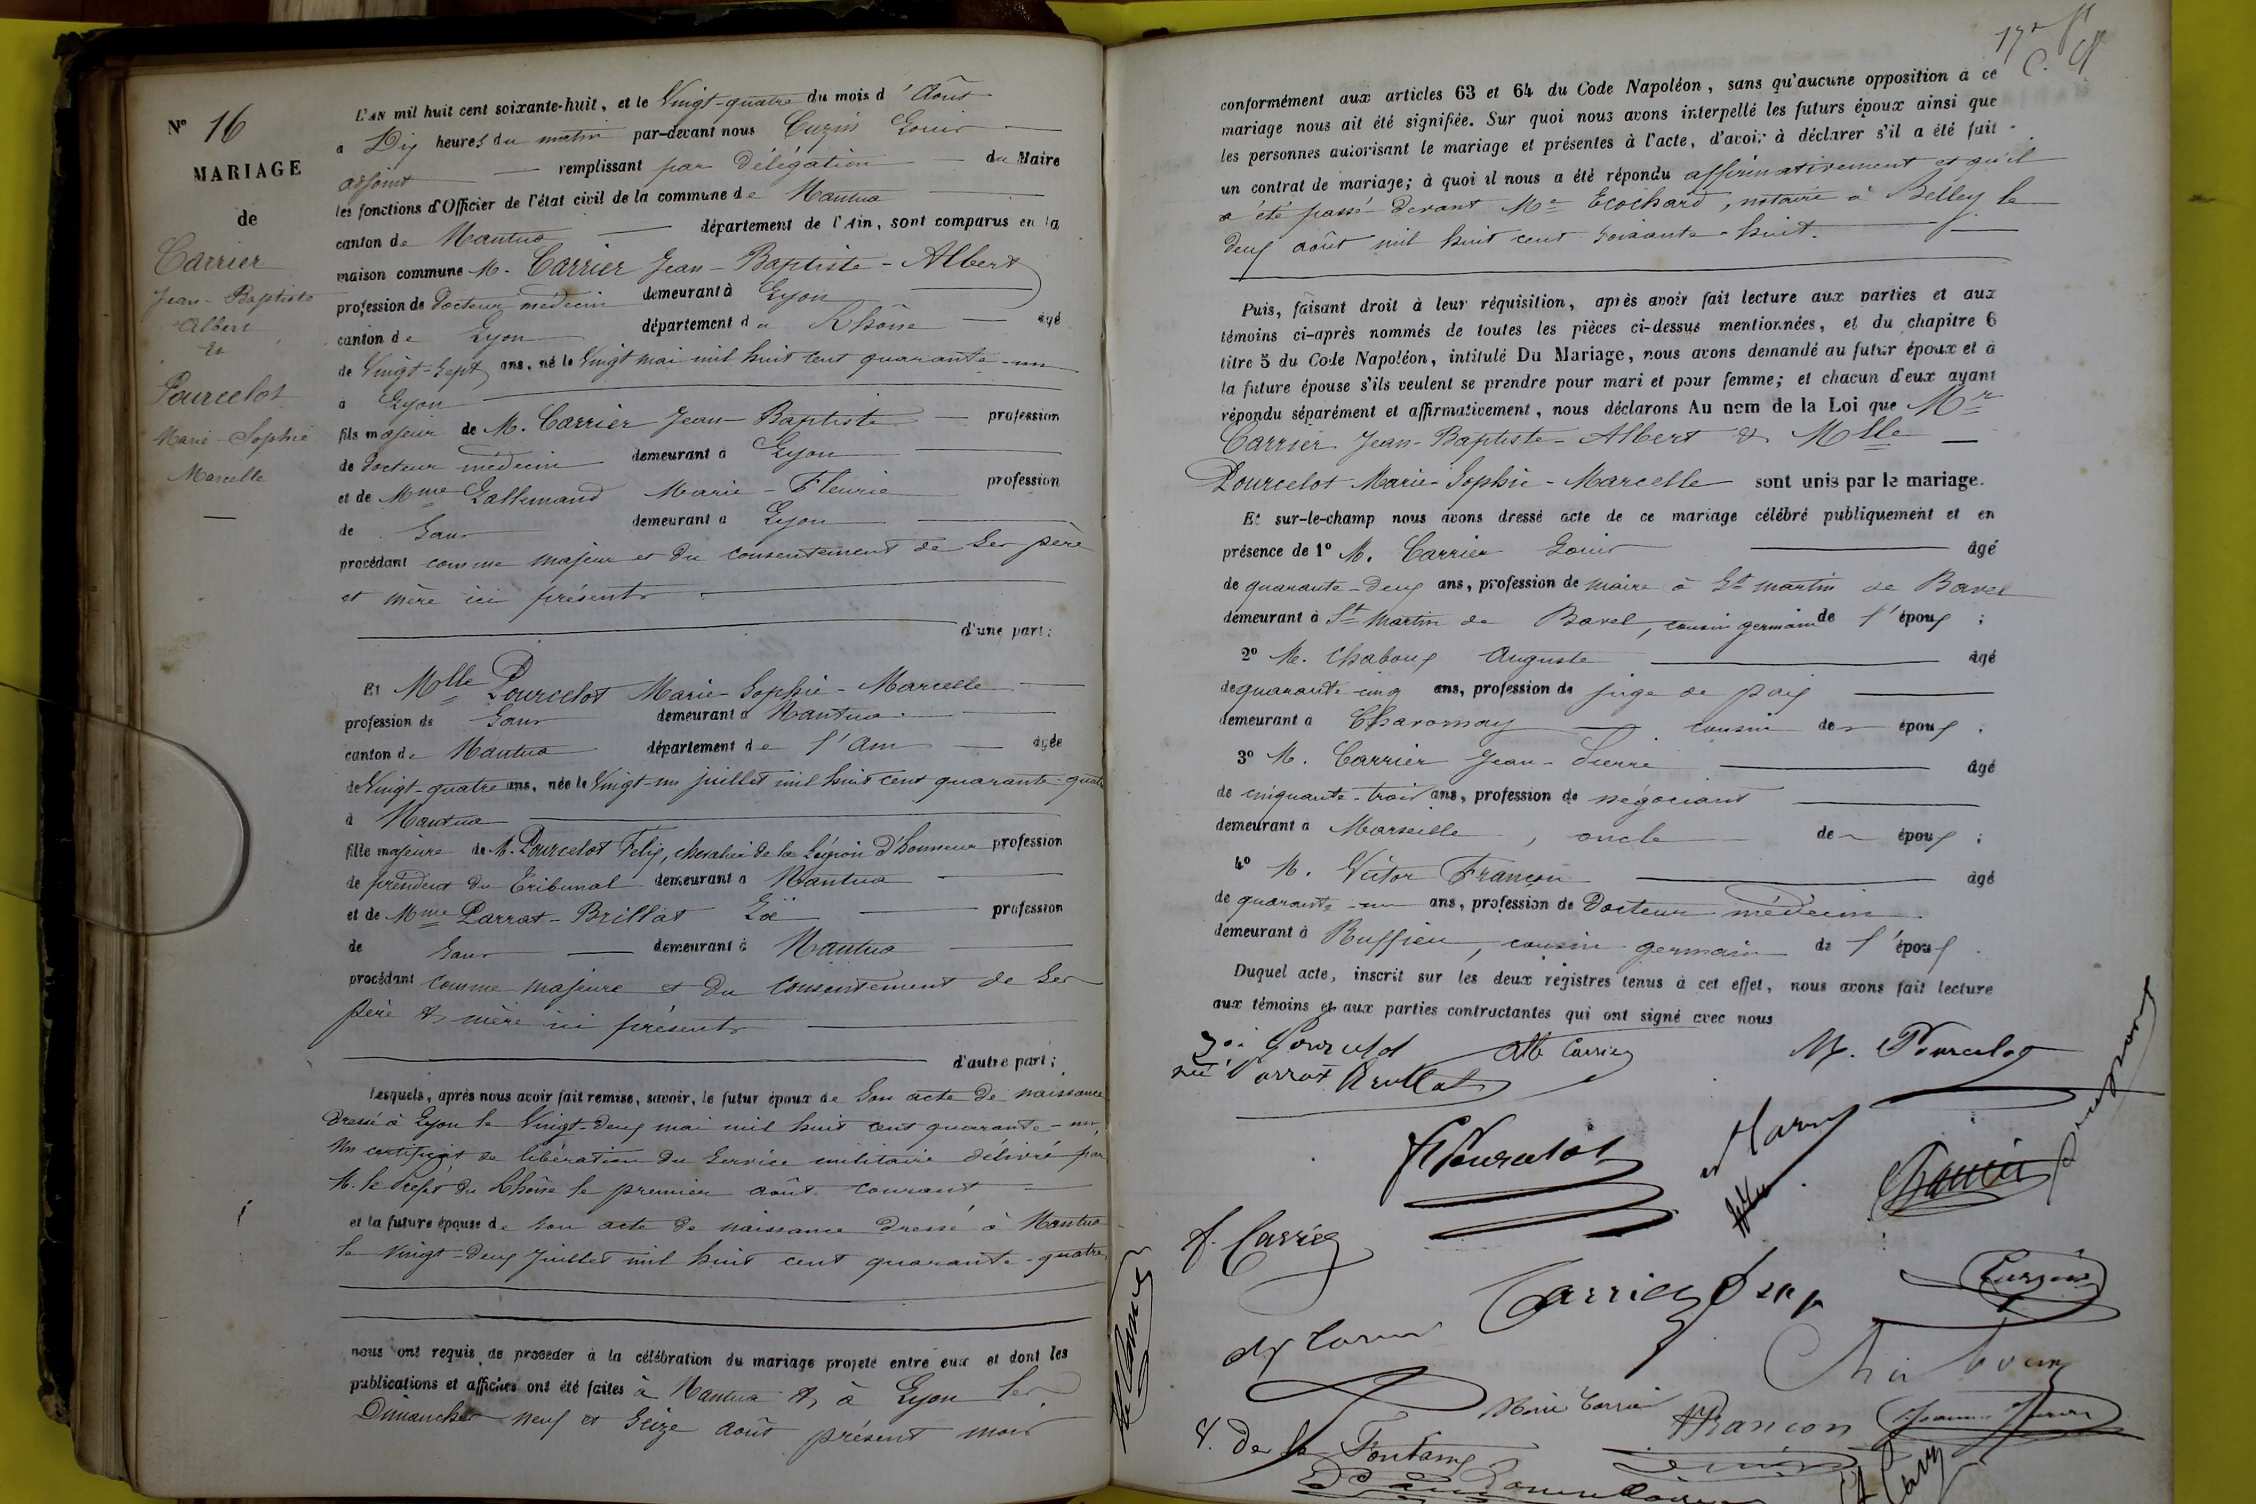 N° 16
MARIAGE
de
Carrier
Jean-Baptiste
Albert
et
Pourcelot
Marie-Sophie
Marcelle
L'AN mil huit cent soixante-huit, et le Vingt-quatre du mois d'Août
a Dix heures du matin par-devant nous Cuzin Louis
adjoint remplissant par délégation du Maire
les fonctions d'Officier de l'état civil de la commune de Nantua
canton de Nantua département de l'Ain, sont comparus en la
maison commune M. Carrier Jean-Baptiste-Albert
profession de docteur médecin demeurant à Lyon
canton de Lyon département du Rhône âgé
de Vingt-Sept ans, né le Vingt mai mil huit cent quarante-un
à Lyon
fils majeur de M. Carrier Jean-Baptiste profession
de docteur médecin demeurant à Lyon
et de Mme Lallemand Marie-Fleurie profession
de Sans demeurant a Lyon
procédant comme majeur et du consentement de Ses père
et mère ici présents
d'une part;
Et Mlle Pourcelot Marie-Sophie-Marcelle
profession de Sans demeurant à Nantua
canton de Nantua département de l'Ain âgée
de Vingt-quatre ans, née le Vingt-un juillet mil huit cent quarante-quatre
à Nantua
fille majeure de M. Pourcelot Félix, chevalier de la Légion d'honneur profession
de président du Tribunal demeurant a Nantua
et de Mme Parrat-Brillat Zoé profession
de Sans demeurant à Nantua
procédant comme majeure et du Consentement de Ses
père et mère ici présents
d'autre part;
Lesquels, après nous avoir fait remise, savoir, le futur époux de Son acte de naissance
dressé à Lyon le Vingt-deux mai mil huit cent quarante-un,
Un certificat de libération du Service militaire délivré par
M. le Préfet du Rhône le premier août courant
et la future épouse de Son acte de naissance dressé à Nantua
le Vingt-deux Juillet mil huit cent quarante-quatre
nous ont requis de procéder à la célébration du mariage projeté entre eux et dont les
publications et affiches ont été faites à Nantua et à Lyon les
Dimanches neuf et Seize août présent mois
conformément aux articles 63 et 64 du Code Napoléon, sans qu'aucune opposition à ce
mariage nous ait été signifiée. Sur quoi nous avons interpellé les futurs époux ainsi que
les personnes autorisant le mariage et présentes à l'acte, d'avoir à déclarer s'il a été fait
un contrat de mariage; à quoi il nous a été répondu affirmativement et qu'il
a été passé devant Me Ecochard, notaire à Belley le
deux août mil huit cent Soixante-huit.
Puis, faisant droit à leur réquisition, après avoir fait lecture aux parties et aux
témoins ci-après nommés de toutes les pièces ci-dessus mentionnées, et du chapitre 6
titre 5 du Code Napoléon, intitulé Du Mariage, nous avons demandé au futur époux et à
la future épouse s'ils veulent se prendre pour mari et pour femme; et chacun d'eux ayant
répondu séparément et affirmativement, nous déclarons Au nom de la Loi que Mr
Carrier Jean-Baptiste-Albert & Mlle
Pourcelot Marie-Sophie-Marcelle sont unis par le mariage.
Et sur-le-champ nous avons dressé acte de ce mariage célébré publiquement et en
présence de 1° M. Carrier Louis âgé
de quarante-deux ans, profession de maire à St martin de Bavel
demeurant à St Martin de Bavel, cousin germain de l'époux;
2° M. Chaboux Auguste âgé
de quarante-cinq ans, profession de juge de paix
demeurant a Chavornay cousin de époux;
3° M. Carrier Jean-Pierre âgé
de cinquante-trois ans, profession de négociant
demeurant a Marseille, oncle de époux;
4° M. Victor Françon âgé
de quarante-un ans, profession de Docteur médecin
demeurant à Ruffieu, cousin germain de l'époux.
Duquel acte, inscrit sur les deux registres tenus à cet effet, nous avons fait lecture
aux témoins et aux parties contractantes qui ont signé avec nous
Zoé Pourcelot
née Parrat Brillat
Alb Carrier
M. Pourcelot
F Pourcelot
Carrier
Cuzin
Chaboux
Marie Carrier
Françon
De la Fontaine